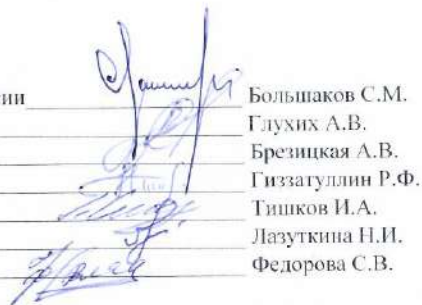 ии Большаков С.М.
Глухих А.В.
Брезицкая А.В.
Гиззатуллин Р.Ф.
Тишков И.А.
Лазуткина Н.И.
Федорова С.В.